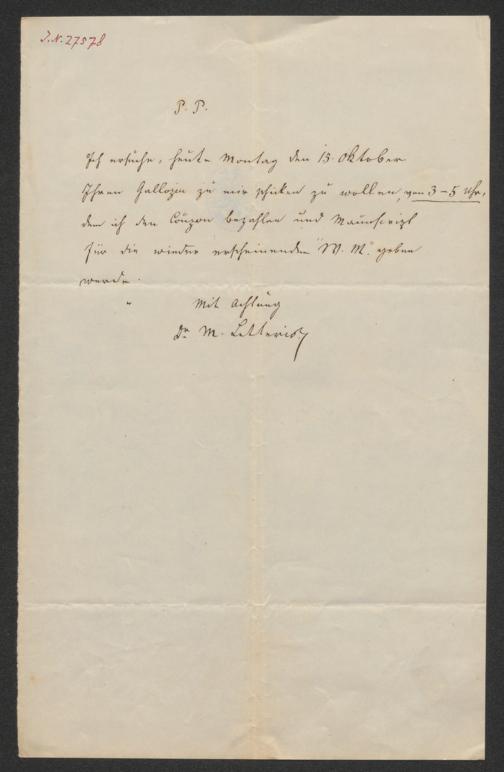 J.N. 27578
P. P.
Ich ersuche, heute Montag den 15. Oktober
Ihren zu mir schicken zu wollen, von 3–5 Uhr,
dem ich den Coupon bezahlen und Manuscript
für die wieder erscheinenden "W. M." geben
werde.
Mit Achtung
Dr. M. Letteris